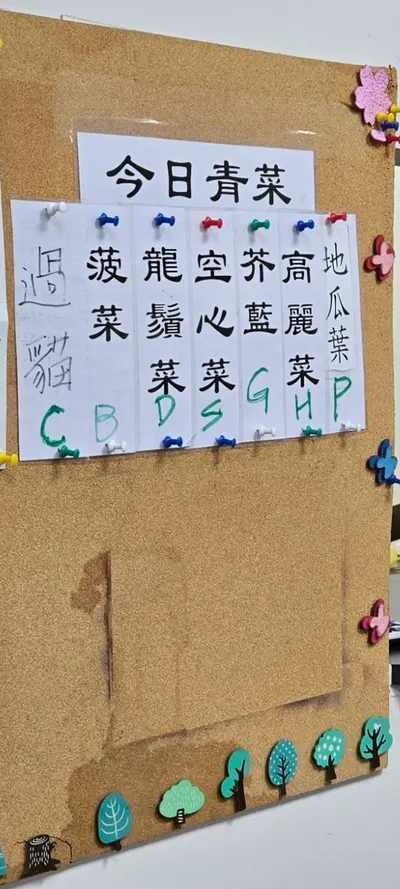 今日青菜
地瓜葉 P
高麗菜 H
芥藍 G
空心菜 S
龍鬚菜 D
菠菜 B
過貓 C